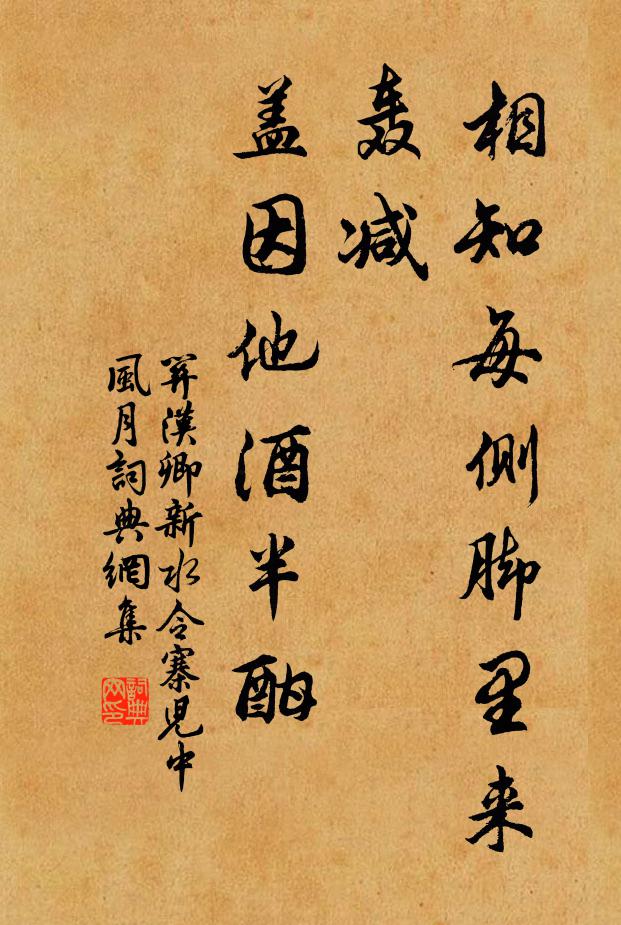 相知每側脚里来
轰减
盖因他酒半酣
關漢卿新水令寨兒中
風月詞典網集
詞典
网印